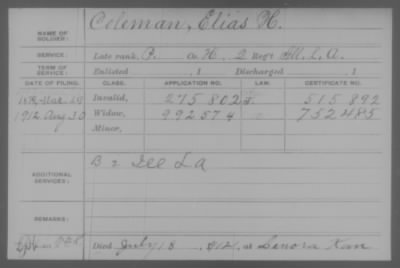 Coleman, Elias H.
NAME OF SOLDIER:
SERVICE: Late rank, P. Co. H, 2 Reg't Ill. L. A.
TERM OF SERVICE: Enlisted , 1 Discharged , 1
DATE OF FILING. CLASS. APPLICATION NO. LAW. CERTIFICATE NO.
Mar. 29 Invalid, 275 802 515 892
1912 Aug 30 Widow, 992574 752485
Minor,
ADDITIONAL SERVICES:
REMARKS:
Died July 18, 1912, at Lenora Kan